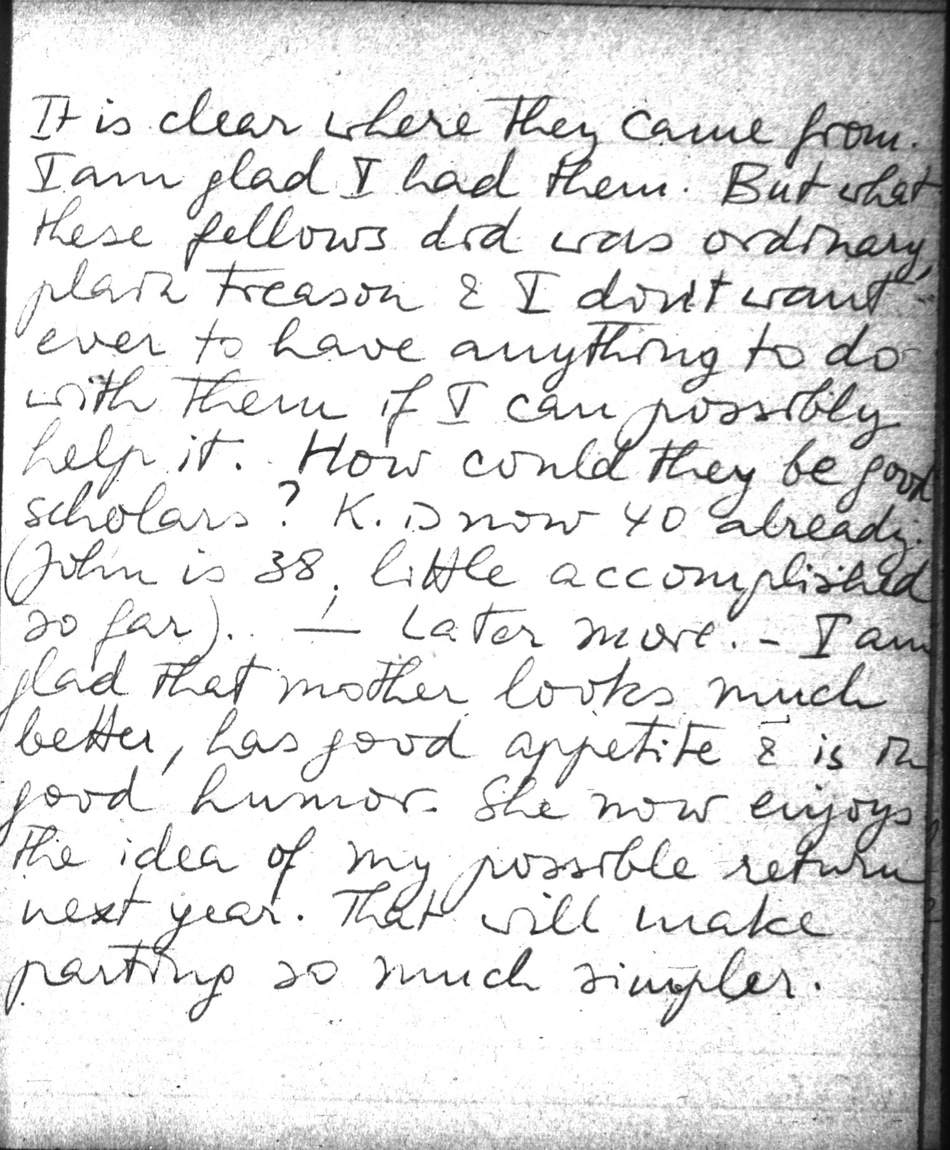 It is clear where they came from.
I am glad I had them. But what
these fellows did was ordinary,
plain treason & I don't want
ever to have anything to do
with them if I can possibly
help it. How could they be good
scholars? K. is now 40 already.
(John is 38, little accomplished
so far). — Later more. - I am
glad that mother looks much
better, has good appetite & is in
good humor. She now enjoys
the idea of my possible return
next year. That will make
parting so much simpler.